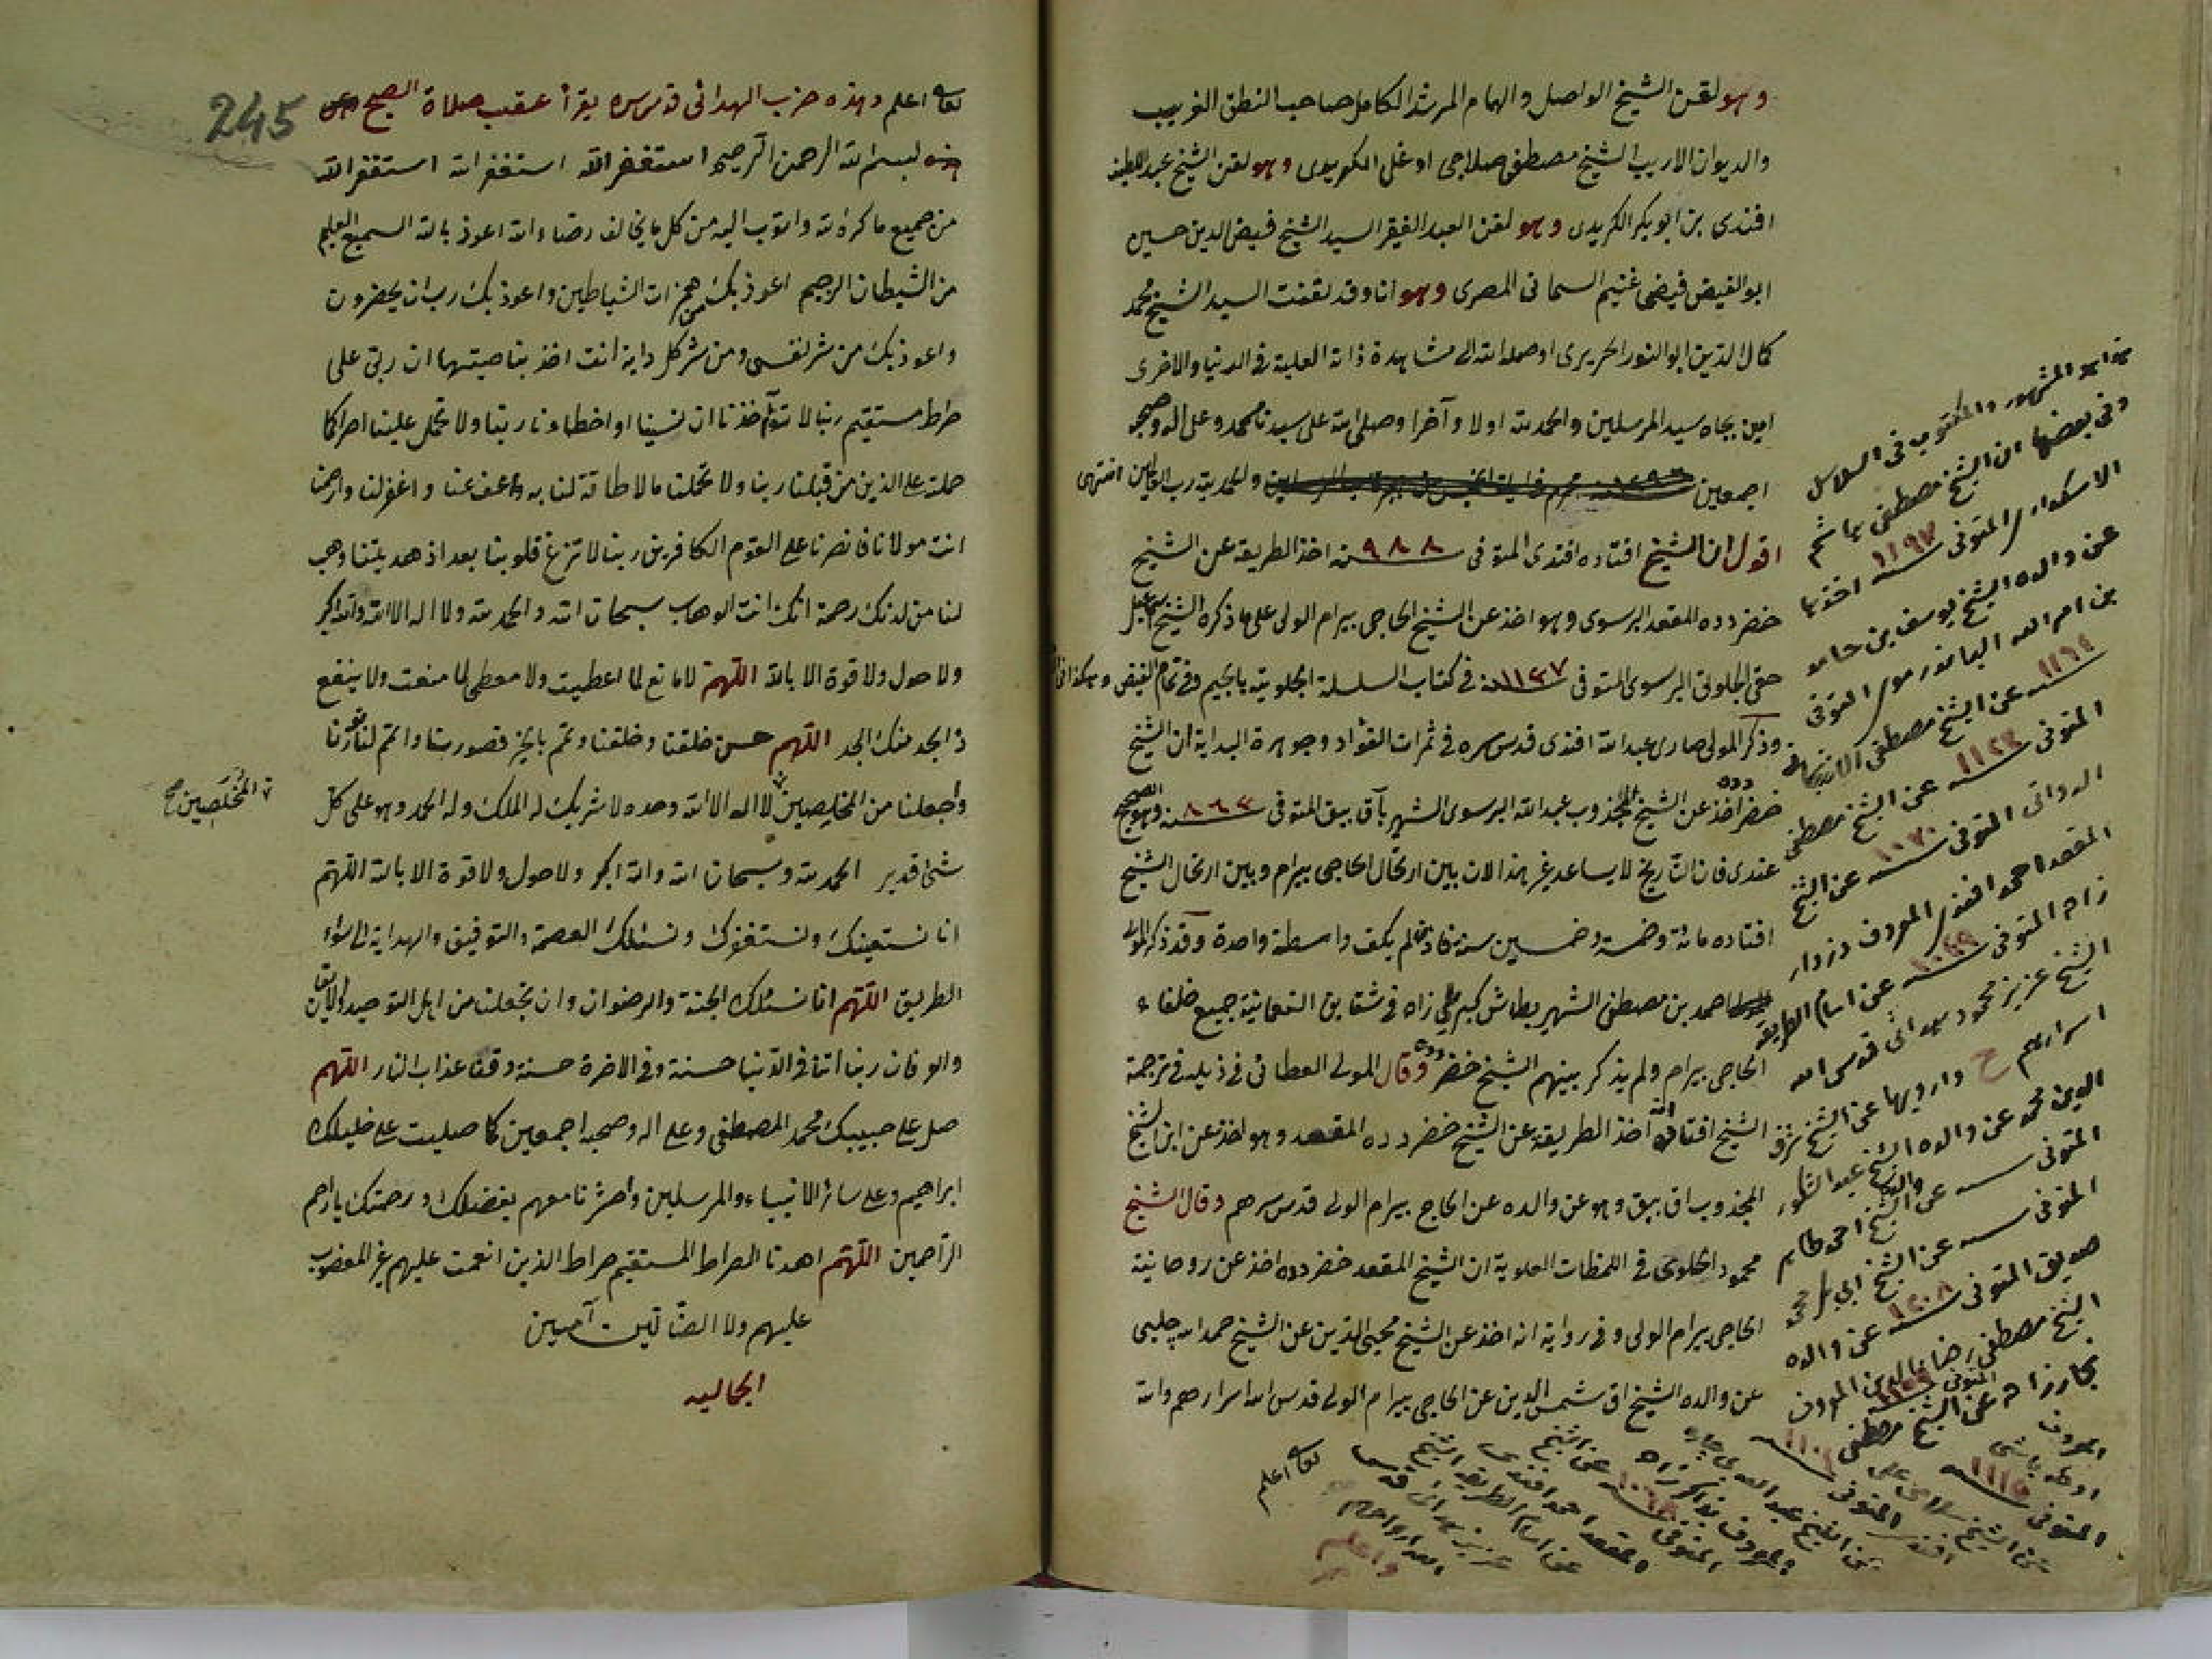 وهو لقن الشيخ الواصل والهمام المرشد الكامل صاحب النطق الغريب
والديوان الاريب الشيخ مصطفى صلاجى اوغلى الكريدى وهو لقن الشيخ عبد اللطيف
افندى بن ابو بكر الكريدى وهو لقن العبد الفقير السيد الشيخ فيض الدين حسين
ابو الفيض فيضى غنيم السمانى المصرى وهو انا وقد لقنت السيد الشيخ محمد
كمال الدين ابو النور الحريرى اوصله الله الى مشاهدة ذاته العلية فى الدنيا والاخرى
امين بجاه سيد المرسلين والحمد لله اولا وآخرا وصلى الله على سيدنا محمد وعلى اله وصحبه
اجمعين والحمد لله رب العالمين انتهى
اقول ان الشيخ افتاده افندى المتوفى سنه ٩٨٨ اخذ الطريقة عن الشيخ
خضر دده المقعد البرسوى وهو اخذ عن الشيخ الحاجى بيرام الولى على ما ذكره الشيخ اسمعيل
حقى الجلوتى البرسوى المتوفى سنه ١١٣٧ فى كتاب السلسلة الجلوتية بالجيم وفى تمام الفيض وهكذا فى
وذكر المولى صارى عبد الله افندى قدس سره فى ثمرات الفؤاد وجوهرة البداية ان الشيخ
خضر دده اخذ عن الشيخ المجذوب عبد الله البرسوى الشهير بآق بيق المتوفى سنه ٨٦٣ وهو الصحيح
عندى فان التاريخ لا يساعد غير هذا لان بين ارتحال الحاجى بيرام وبين ارتحال الشيخ
افتاده مائة وخمسة وخمسين سنة فلم يكف واسطة واحدة وقد ذكر المولى
احمد بن مصطفى الشهير بطاش كبرى زاده فى شقايق النعمانية جميع خلفاء
الحاجى بيرام ولم يذكر بينهم الشيخ خضر دده وقال المولى العطائى فى ذيله فى ترجمة
الشيخ افتاده انه اخذ الطريقة عن الشيخ خضر دده المقعد وهو اخذ عن ابن الشيخ
المجذوب اق بيق وهو عن والده عن الحاج بيرام الولى قدس سرهم وقال الشيخ
محمود الخلوى فى اللمظات العلوية ان الشيخ المقعد خضر دده اخذ عن روحانية
الحاجى بيرام الولى وفى رواية انه اخذ عن الشيخ محيى الدين عن الشيخ حمد الله چلبى
عن والده الشيخ اق شمس الدين عن الحاجى بيرام الولى قدس الله اسرارهم والله
تعالى اعلم
هو المشهور والمكتوب فى السلاسل
وفى بعضها ان الشيخ مصطفى هاشم
الاسكدارى المتوفى سنه ١١٩٧ اخذها
عن والده الشيخ يوسف بن حامد
بن امر الله البانذرموى المتوفى
سنه ١١٦٤ عن الشيخ مصطفى
المتوفى سنه ١١٢٣ عن الشيخ مصطفى
الدواتى المتوفى سنه ١٠٧٠ عن الشيخ
المقعد احمد افندى المعروف دزدار
زاده المتوفى سنه عن امام الطريقة
الشيخ عزيز محمود هدائى قدس الله
اسرارهم ح وارويها عن الشيخ شرف
الدين محمد عن والده الشيخ عبد الشكور
المتوفى سنه عن والده الشيخ احمد طاهر
المتوفى سنه عن الشيخ
المتوفى سنه ١٢٠٨ عن والده
الشيخ مصطفى رضاء الدين المعروف
نجار زاده المتوفى عن الشيخ مصطفى
المعروف
اوده باشى
المتوفى سنه ١١١٥
عن الشيخ سلامى على
افندى المتوفى سنه
عن الشيخ عبد الله
المعروف بذاكر زاده
المتوفى سنه عن الشيخ
المقعد احمد افندى
عن امام الطريقة الشيخ
عزيز هدائى قدس
الله ارواحهم
واعلم
245
تعالى اعلم وهذه حزب الهدائى قدس سره يقرأ عقب صلاة الصبح
بسم الله الرحمن الرحيم استغفر الله استغفر الله استغفر الله
من جميع ما كره الله واتوب اليه من كل ما يخالف رضاء الله اعوذ بالله السميع العليم
من الشيطان الرجيم اعوذ بك من همزات الشياطين واعوذ بك رب ان يحضرون
واعوذ بك من شر نفسى ومن شر كل دابة انت اخذ بناصيتها ان ربى على
صراط مستقيم ربنا لا تؤاخذنا ان نسينا او اخطاءنا ربنا ولا تحمل علينا اصرا كما
حملته على الذين من قبلنا ربنا ولا تحملنا ما لا طاقة لنا به واعف عنا واغفر لنا وارحمنا
انت مولانا فانصرنا على القوم الكافرين ربنا لا تزغ قلوبنا بعد اذ هديتنا وهب
لنا من لدنك رحمة انك انت الوهاب سبحان الله والحمد لله ولا اله الا الله والله اكبر
ولا حول ولا قوة الا بالله اللهم لا مانع لما اعطيت ولا معطى لما منعت ولا ينفع
ذا الجد منك الجد اللهم حسن خلقنا وخلقنا وتمم بالخير قصورنا واتمم لنا نورنا
واجعلنا من المخلصين لا اله الا الله وحده لا شريك له له الملك وله الحمد وهو على كل
المخلصين صح
شئ قدير الحمد لله وسبحان الله والله اكبر ولا حول ولا قوة الا بالله اللهم
انا نستعينك ونستغفرك ونسئلك العصمة والتوفيق والهداية الى سواء
الطريق اللهم انا نسئلك الجنة والرضوان وان تجعلنا من اهل التوحيد والايقان
والوفان ربنا اتنا فى الدنيا حسنة وفى الاخرة حسنة وقنا عذاب النار اللهم
صل على حبيبك محمد المصطفى وعلى اله وصحبه اجمعين كما صليت على خليلك
ابراهيم وعلى سائر الانبياء والمرسلين واحشرنا معهم بفضلك ورحمتك يا ارحم
الراحمين اللهم اهدنا الصراط المستقيم صراط الذين انعمت عليهم غير المغضوب
عليهم ولا الضالين آمين
الجماليه